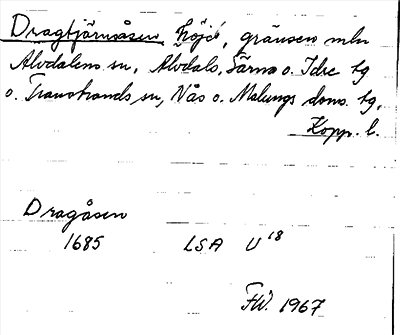 Dragtjärnsåsen, höjd, gränsen mln
Älvdalens sn, Älvdals, Särna o. Idre tg
o. Transtrands sn, Nås o. Malungs doms. tg,
Kopp. l.
Dragåsen
1685 LSA U18
FW. 1967